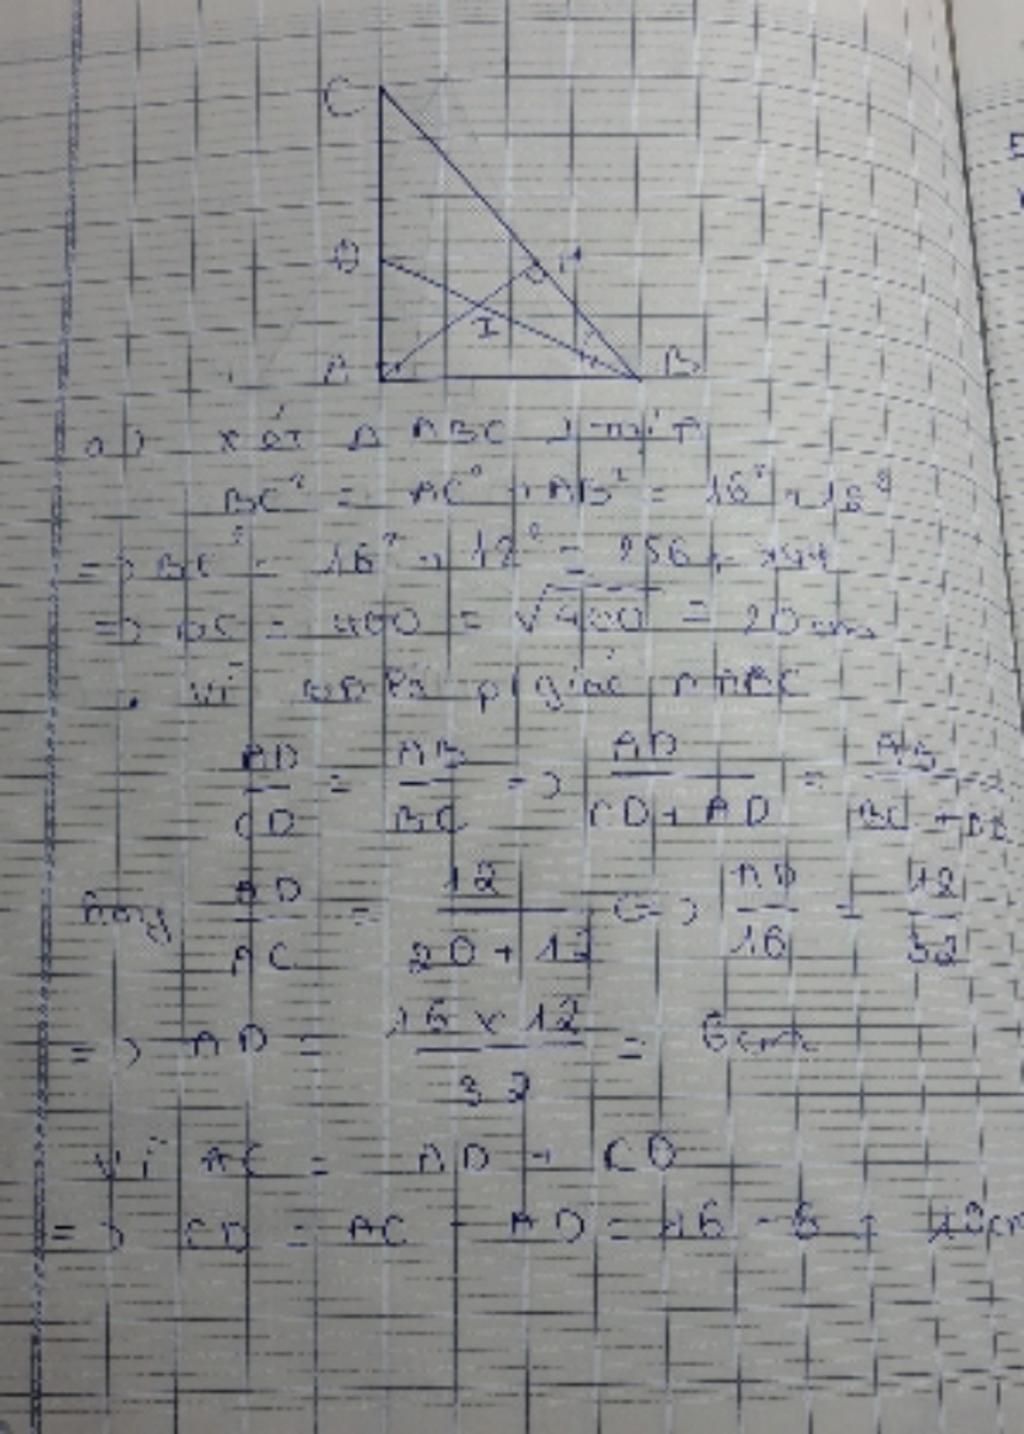 C
D H
I
A B
a) xét Δ ABC
BC² = AC² + AB² = 16² + 12²
=> BC² = 16² + 12² = 256 +
=> BC = 400 = √400 = 20 cm
Vì là p/giác ABC
AD/CD = AB/BC => AD/CD + AD = AB/BC +
hay AD/AC = 12/20 + 12 <=> AD/16 = 12/32
=> AD = 16 x 12/32 = 6cm
Vì AC = AD + CD
=> CD = AC - AD = 16 - 6 =